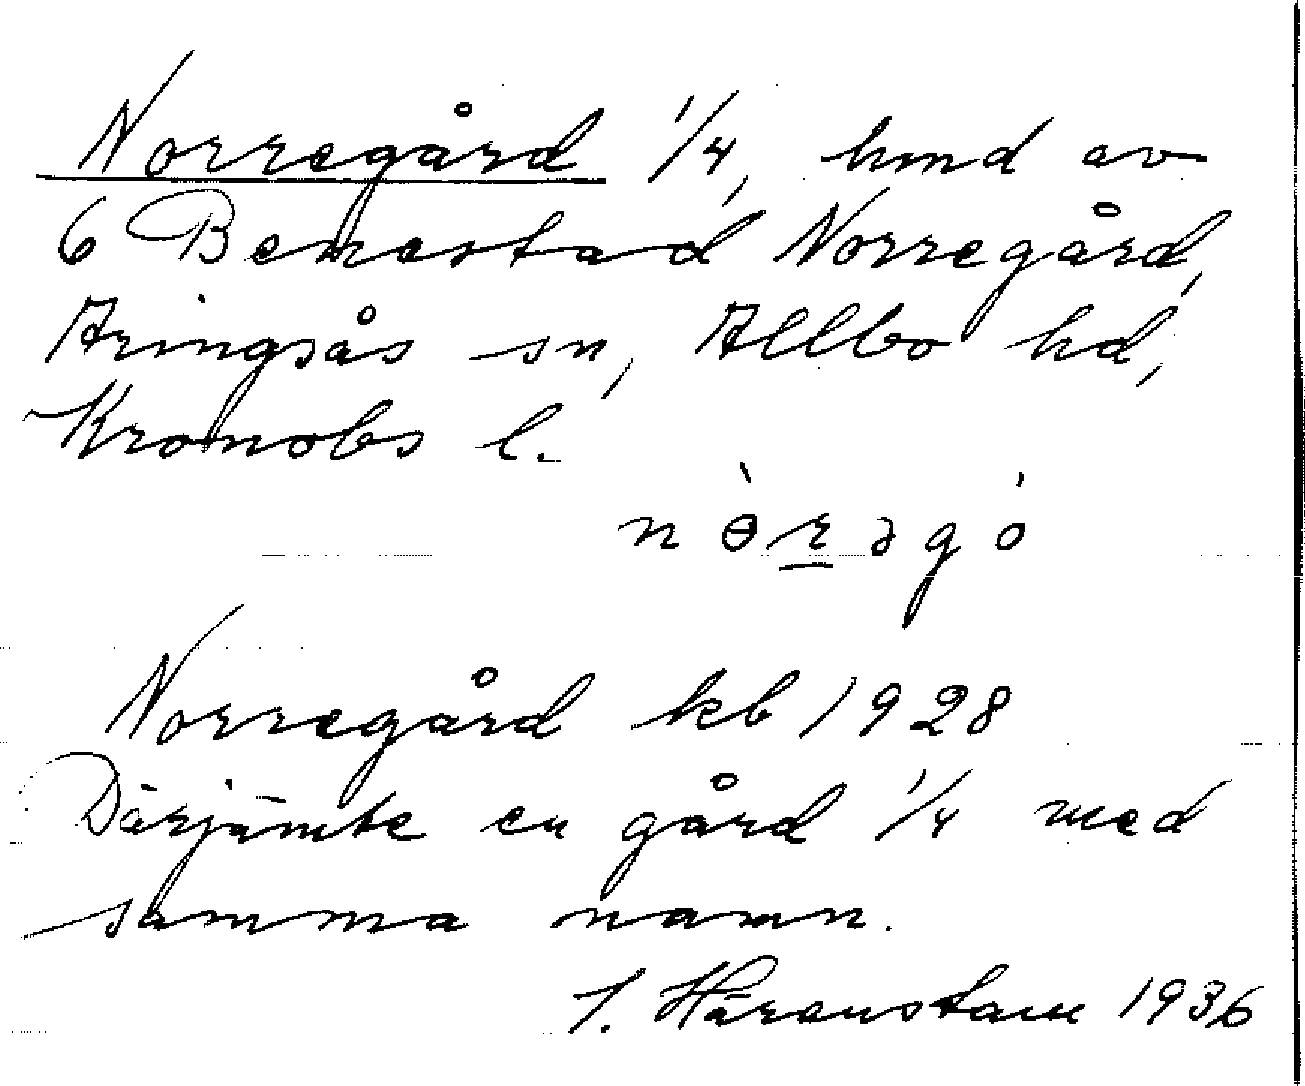 Norregård 1/4, hmd av
6 Benestad Norregård,
Aringsås sn, Allbo hd,
Kronobs l.
nɵ̀rəgó
Norregård kb 1928
Därjämte en gård 1/4 med
samma namn.
I. Häranstam 1936